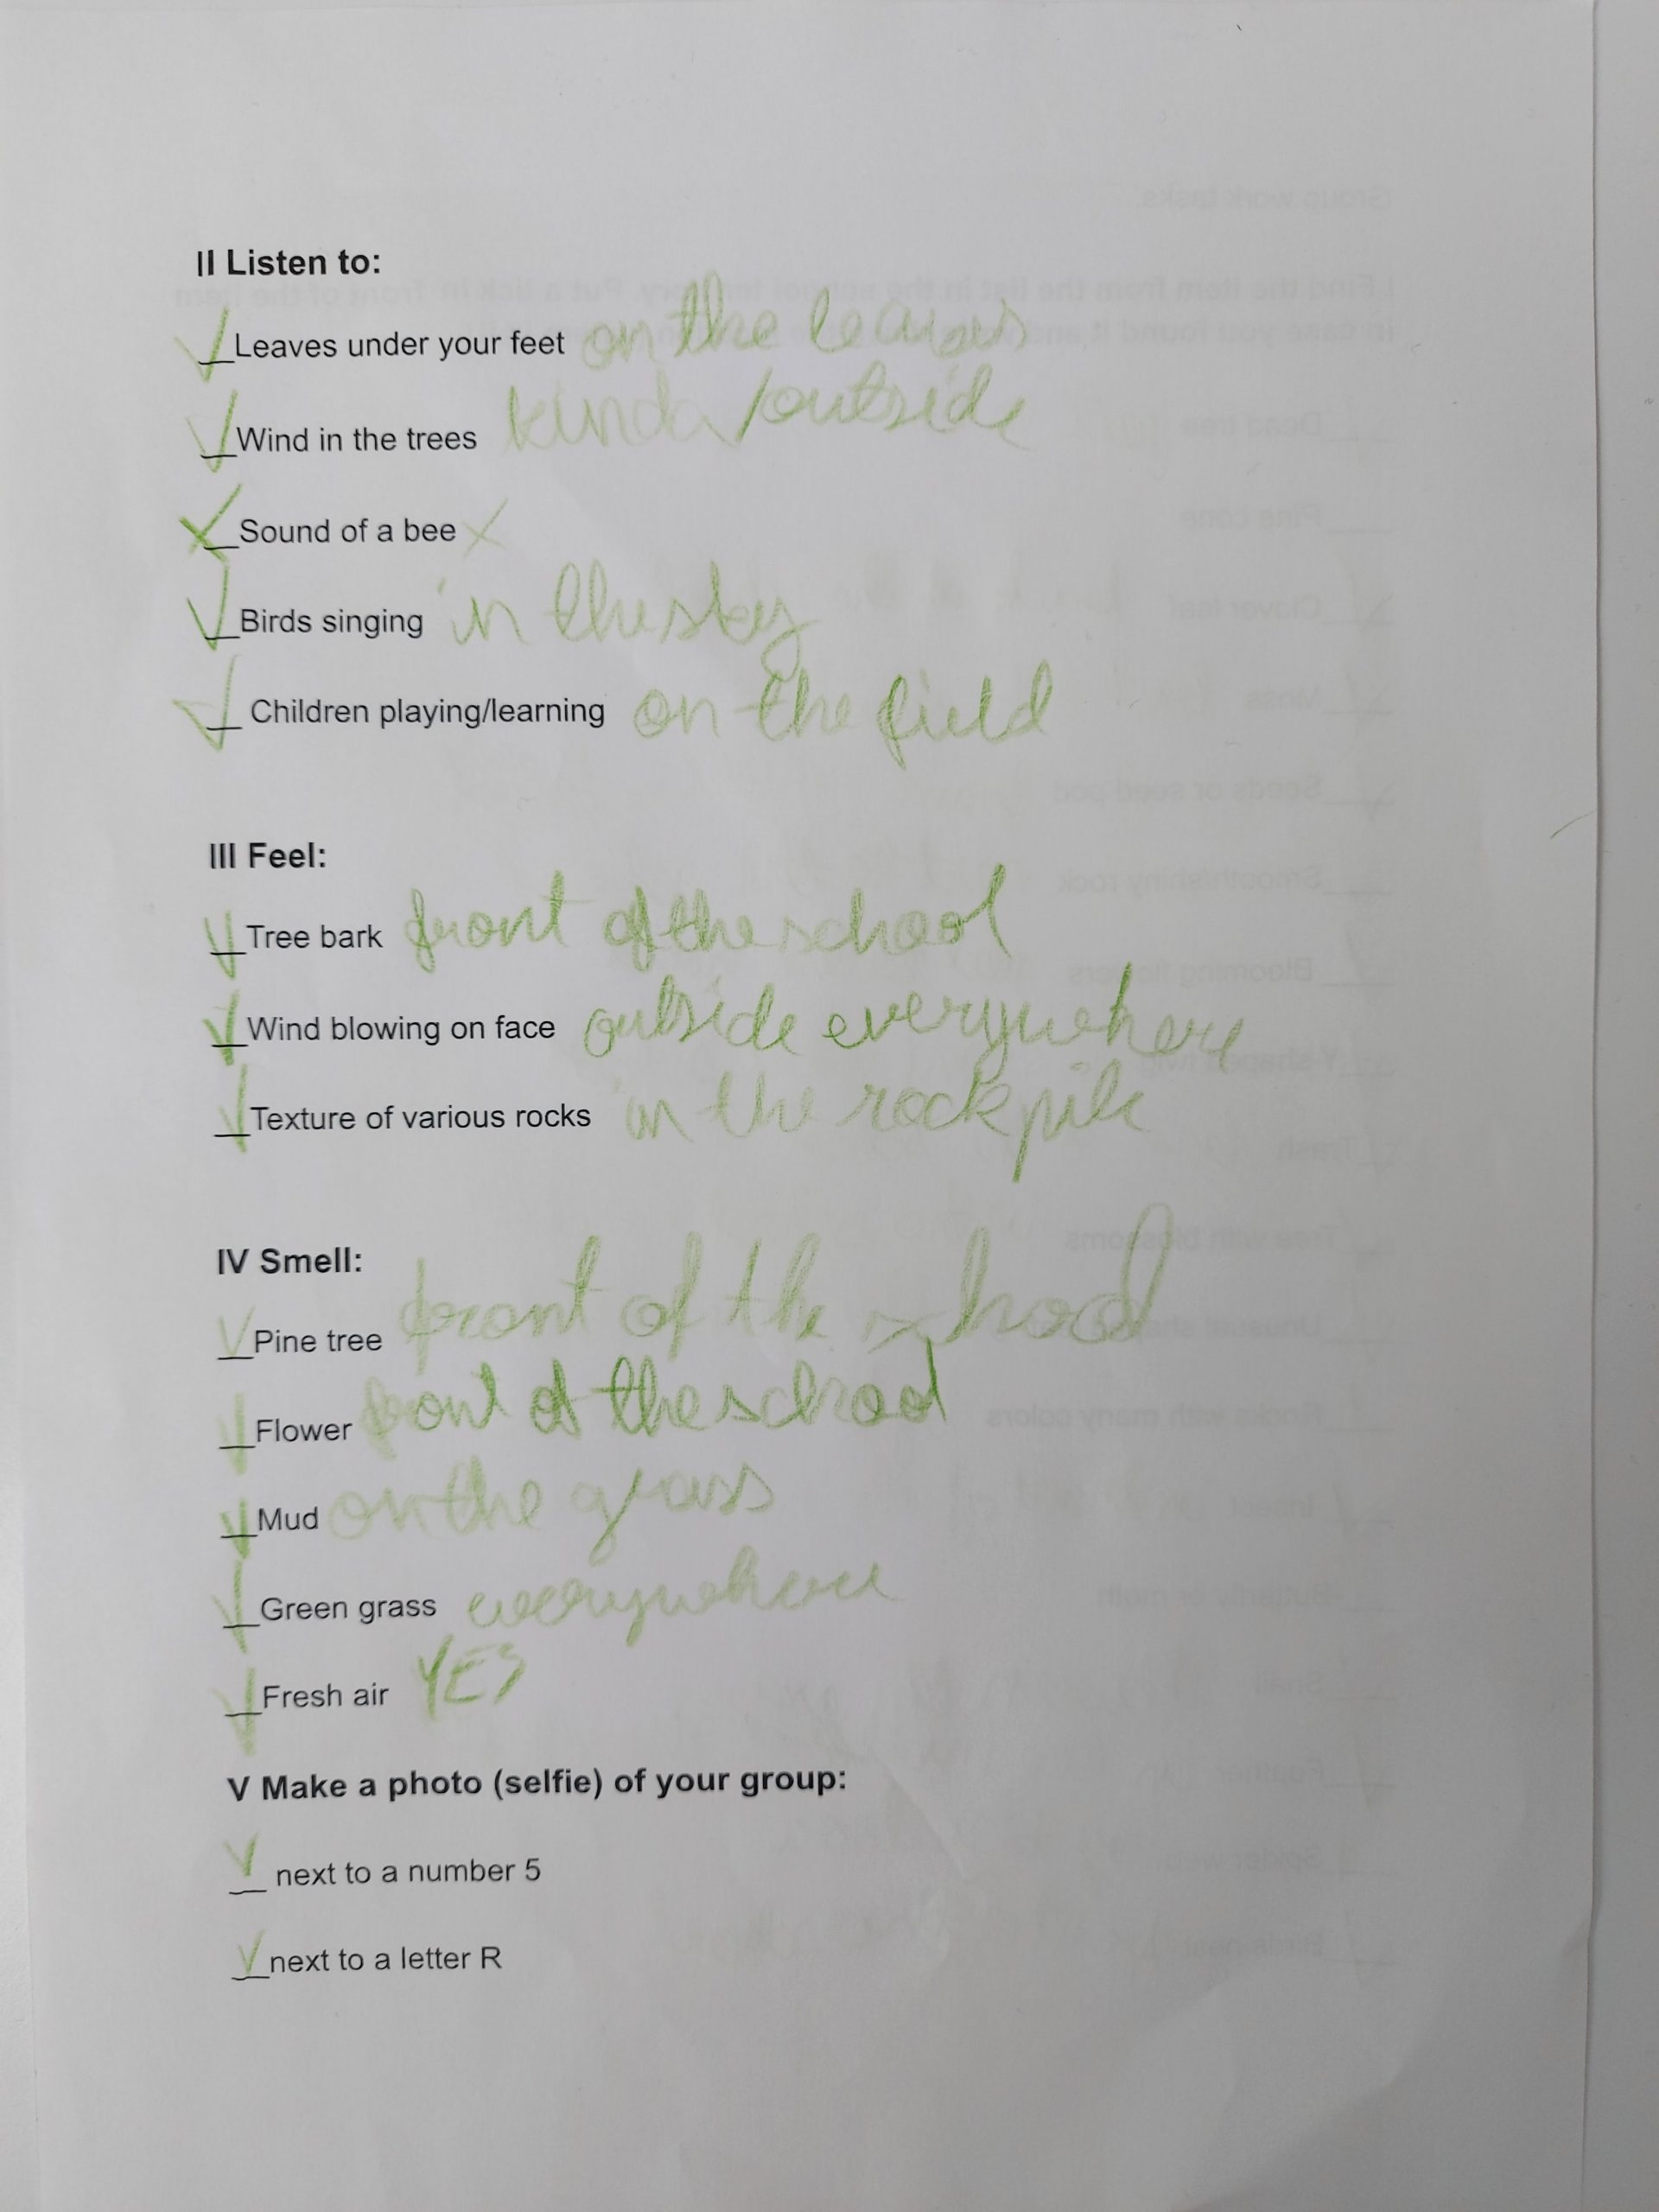 II Listen to:
__Leaves under your feet on the leaves
__Wind in the trees kinda/outside
__Sound of a bee X
__Birds singing in the sky
__ Children playing/learning on the field
III Feel:
__Tree bark front of the school
__Wind blowing on face outside everywhere
__Texture of various rocks in the rock pile
IV Smell:
__Pine tree front of the school
__Flower front of the school
__Mud on the grass
__Green grass everywhere
__Fresh air YES
V Make a photo (selfie) of your group:
__ next to a number 5
__next to a letter R